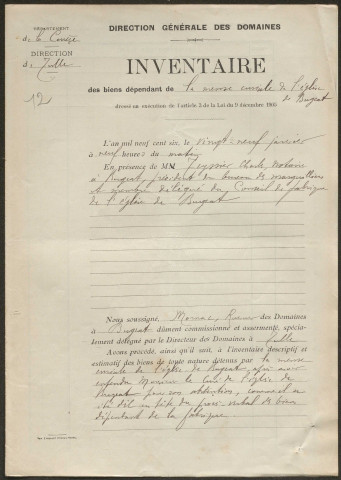 DÉPARTEMENT
de la Corrèze
DIRECTION
de Tulle
12
DIRECTION GÉNÉRALE DES DOMAINES
INVENTAIRE
des biens dépendant de la mense curiale de l'église
de Bugeat
dressé en exécution de l'article 3 de la Loi du 9 décembre 1905
L'an mil neuf cent six, le vingt-neuf janvier
à neuf heures du matin
En présence de MM. Peyrier Charles notaire
à Bugeat, président du bureau des marguilliers
et membre délégué du Conseil de fabrique
de l'église de Bugeat
Nous soussigné, Receveur des Domaines
à Bugeat dûment commissionné et assermenté, spécia-
lement délégué par le Directeur des Domaines à Tulle
Avons procédé, ainsi qu'il suit, à l'inventaire descriptif et
estimatif des biens de toute nature détenus par la mense
curiale de l'église de Bugeat, après avoir
Monsieur le Curé de l'église de
Bugeat comme il a
été dit en tête du procès-verbal des biens
dépendant de la fabrique